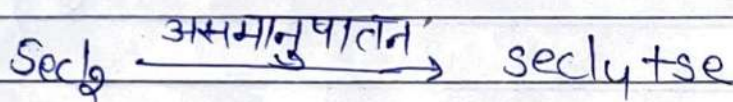 Secl2 असमानुपातन → secl4 + se